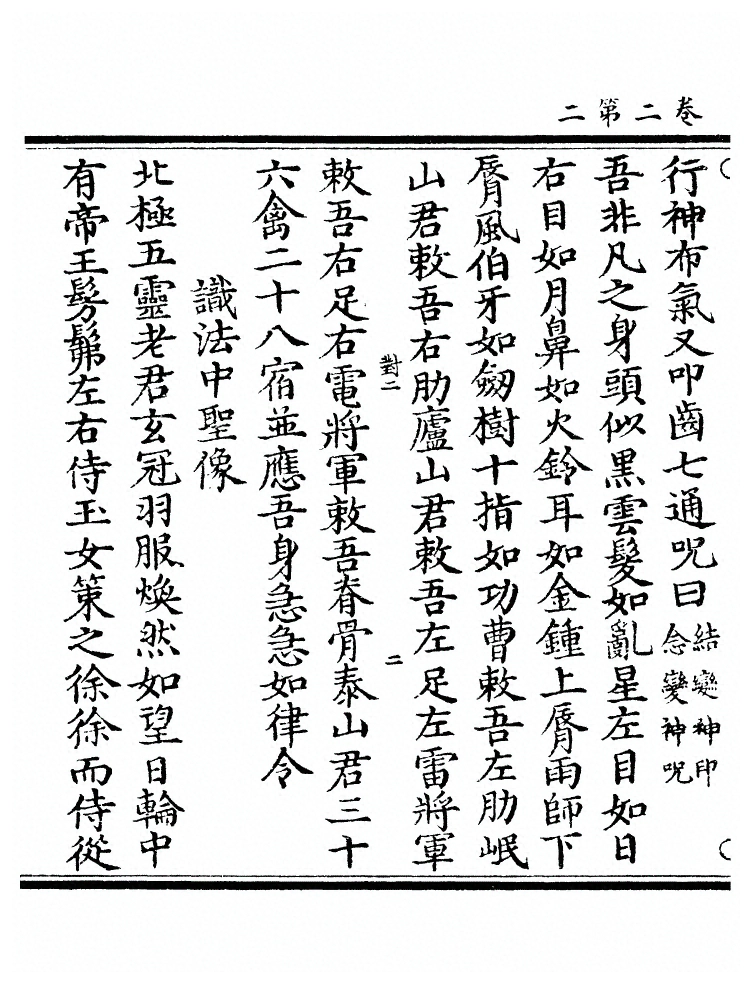 卷二第二
行神布氣又叩齒七通呪曰結變神印念變神呪
吾非凡之身頭似黑雲髮如亂星左目如日
右目如月鼻如火鈴耳如金鍾上脣雨師下
脣風伯牙如劒樹十指如功曹敕吾左肋岷
山君敕吾右肋廬山君敕吾左足左雷將軍
對二
二
敕吾右足右電將軍敕吾脊骨泰山君三十
六禽二十八宿並應吾身急急如律令
識法中聖像
北極五靈老君玄冠羽服煥然如望日輪中
有帝王髣髴左右侍玉女策之徐徐而侍從